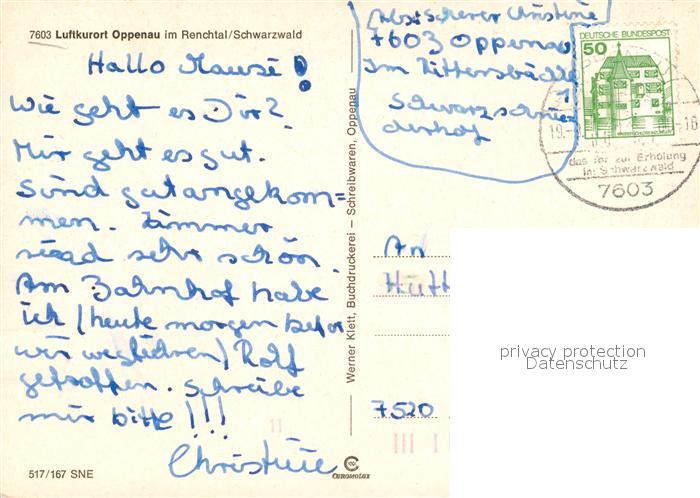 7603 Luftkurort Oppenau im Renchtal/Schwarzwald
Hallo Mausi!
Wie geht es Dir?
Mir geht es gut.
Sind gut angekom=
men. Zimmer
sind sehr schön.
Am Bahnhof habe
ich (heute morgen bevor
wir wegfuhren) Rolf
getroffen. Schreibe
mir bitte!!!
Christine
517/167 SNE
CHROMOLUX
Werner Klett, Buchdruckerei – Schreibwaren, Oppenau
Abs: Christine
7603 Oppenau
Im
1
Schwarz
derhof
DEUTSCHE BUNDESPOST
50
19.
-18
das Tor zur Erholung
im Schwarzwald
7603
An
7520
privacy protection
Datenschutz